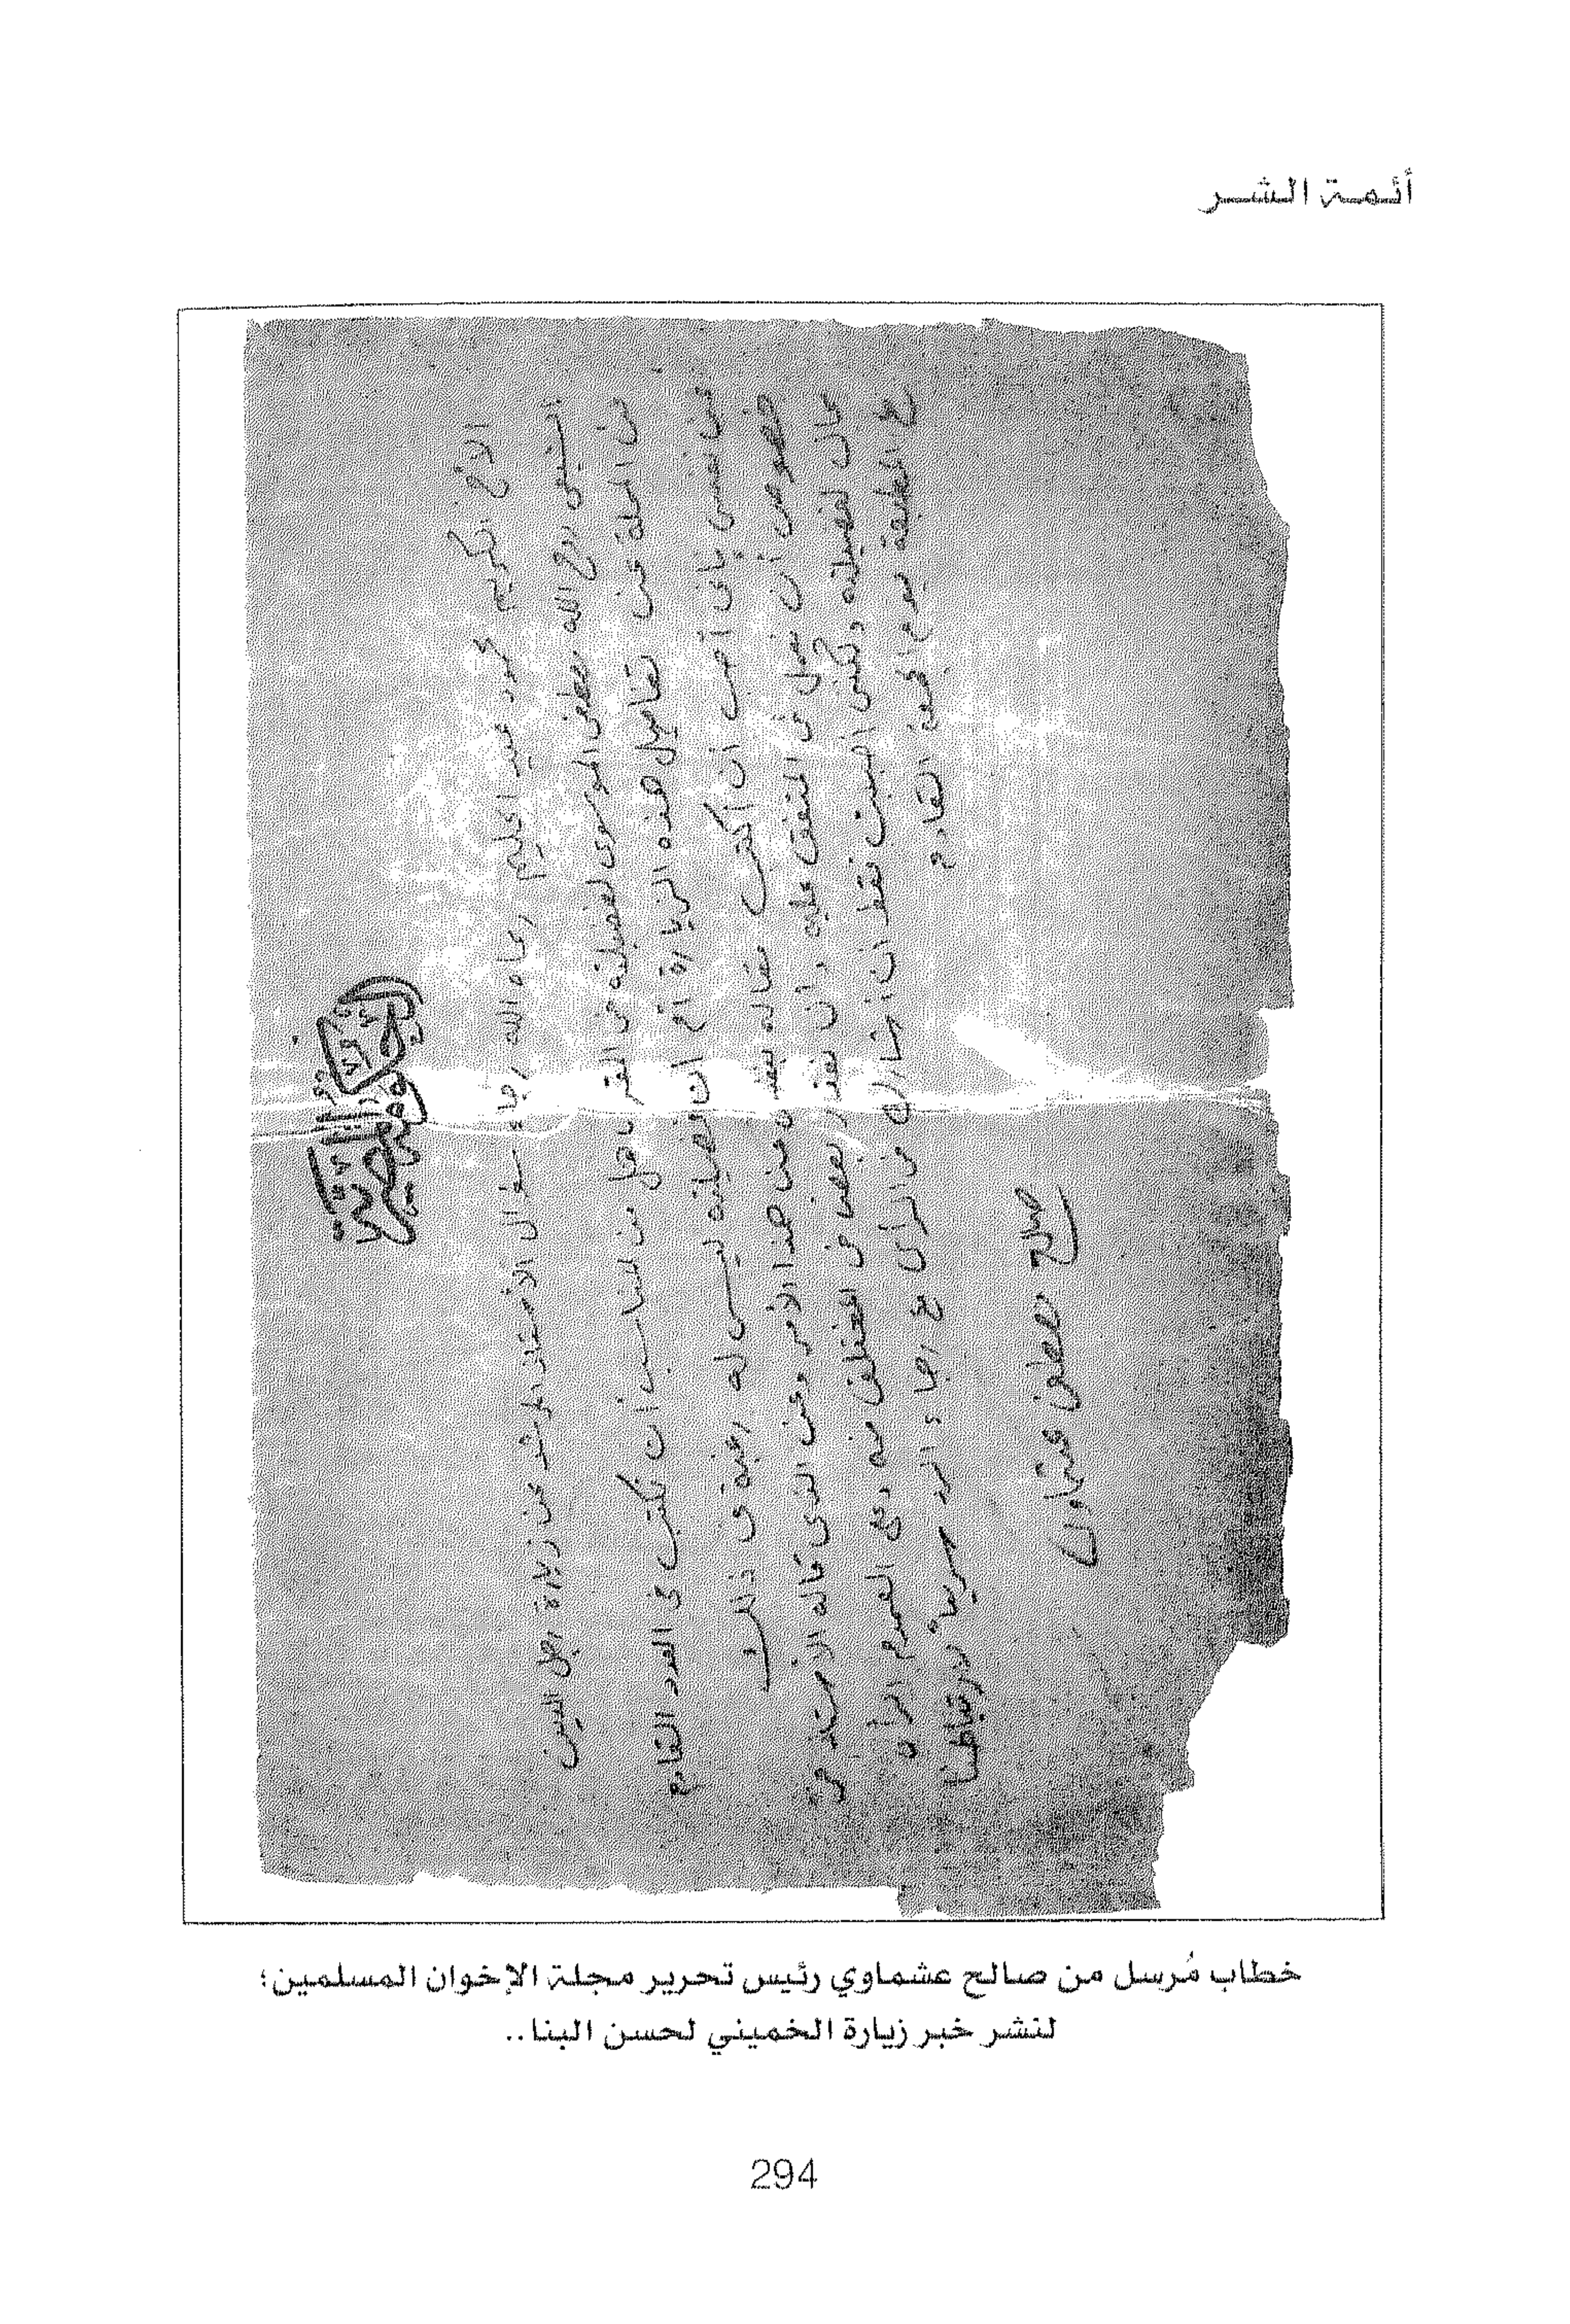 أئمة الشر
الأخ الكريم محمود عبد الحليم رعاه الله رجاء سؤال الأستاذ المرشد عن زيارة رجل الدين
الشيعى روح الله مصطفى الموسوى لفضيلته فى المقر وهل من المناسب أن نكتب فى العدد القادم
من المجلة عن تفاصيل هذه الزيارة أم أن فضيلته ليس له رغبة فى ذلك
عن نفسى بأنى أحب أن أكتب مقاله عن هذا الأمر وعن الذى قاله الأستاذ
خصوص أن نعمل فى المتفق عليه وأن نعذر بعضنا فى المختلف فيه وعلى العموم الرأى
لفضيلته ولكنى أحببت فقط أن أشارك فى الرأى مع رجاء الرد سريعاً لارتباطنا
مع المطبعة يوم الجمعة القادم
صالح مصطفى عشماوى
خطاب مُرسل من صالح عشماوي رئيس تحرير مجلة الإخوان المسلمين؛
لنشر خبر زيارة الخميني لحسن البنا..
294